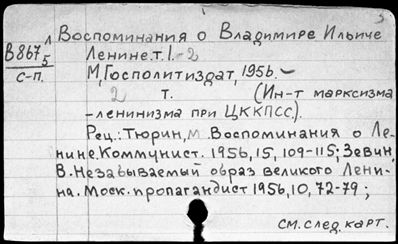 5
Воспоминания о Владимире Ильиче
В867 Л/5 Ленине.т.1.-2
С-П. М,Госполитиздат,1956.-
2 т. (Ин-т марксизма
-ленинизма при ЦККПСС.).
Рец.: Тюрин, М. Воспоминания о Ле-
нине.Коммунист. 1956,15,109-115; Зевин,
В.Незабываемый образ великого Лени-
на. Моск.пропагандист 1956,10,72-79;
см.след.карт.